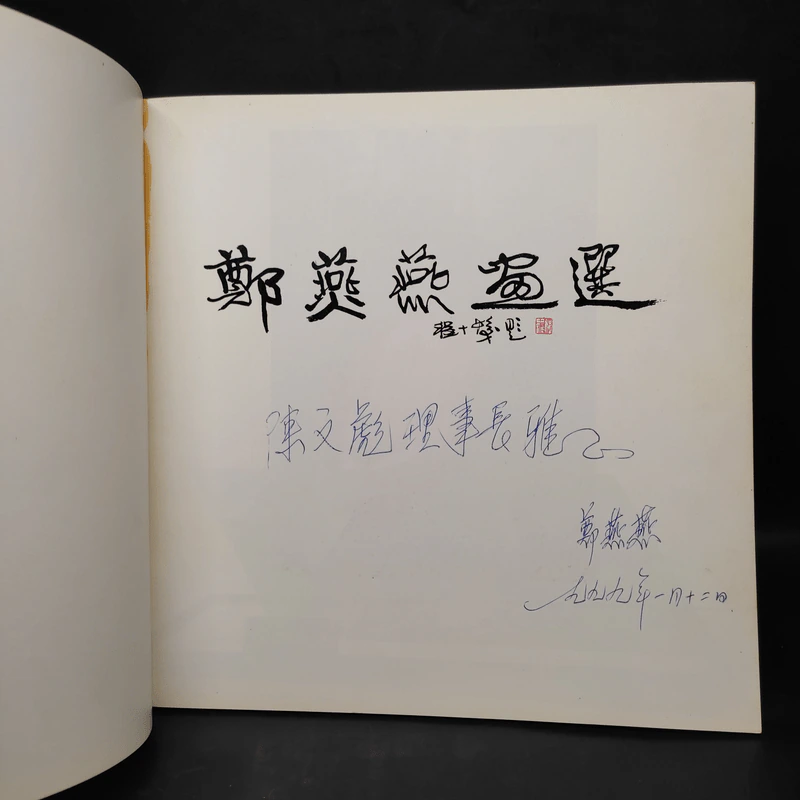 鄭燕燕画選
程十髮題
陳文彪理事長雅正
鄭燕燕
一九九九年一月十二日